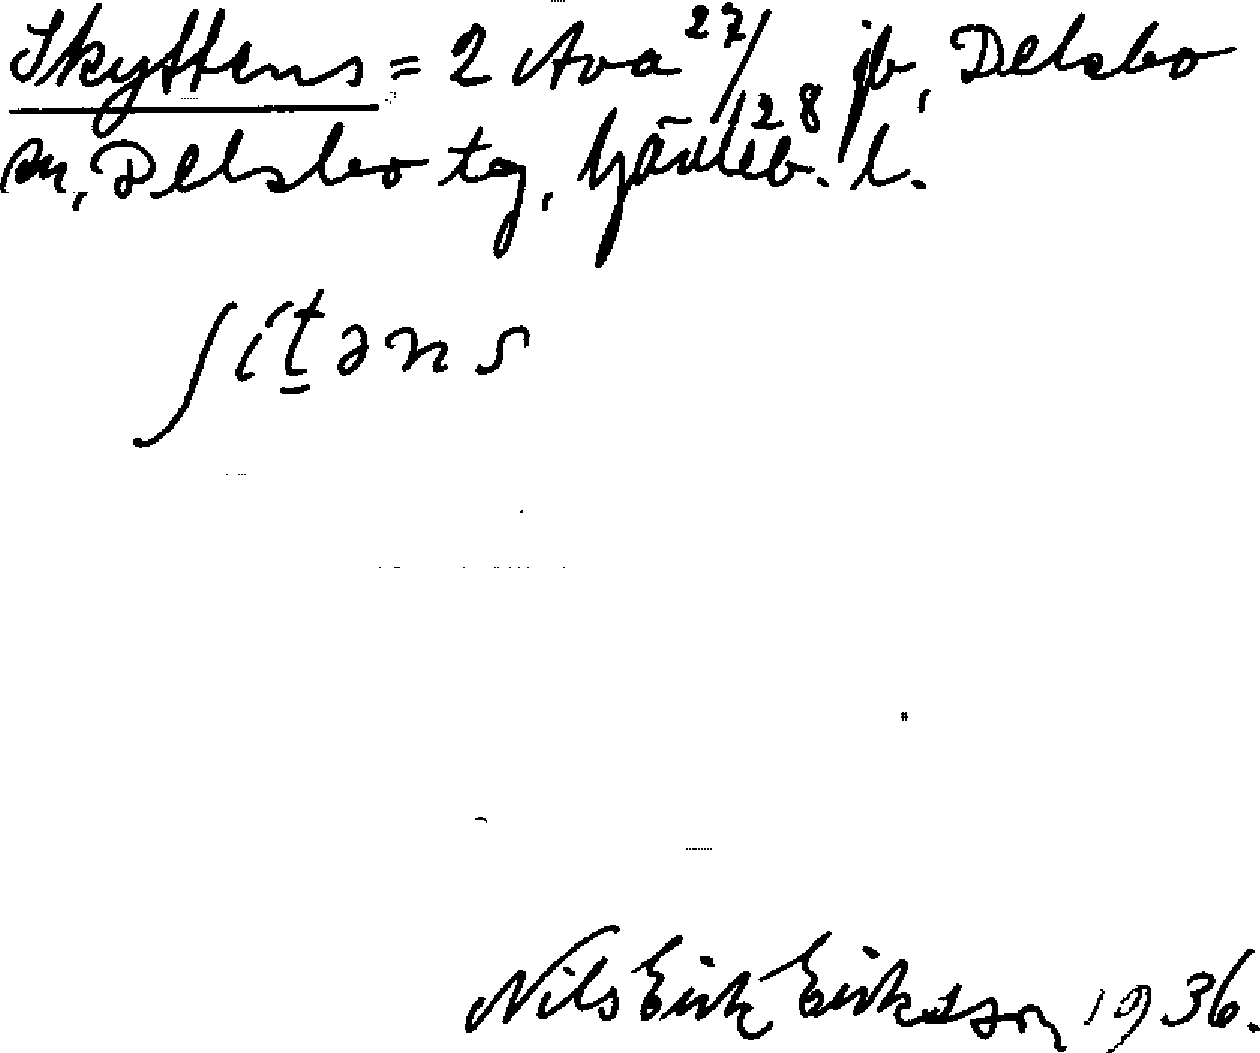 Skyttens = 2 Ava 27/128 jb, Delsbo
sn, Delsbo tg, Gävleb. l.
ʃít̲əns
Nils Erik Eriksson 1936.